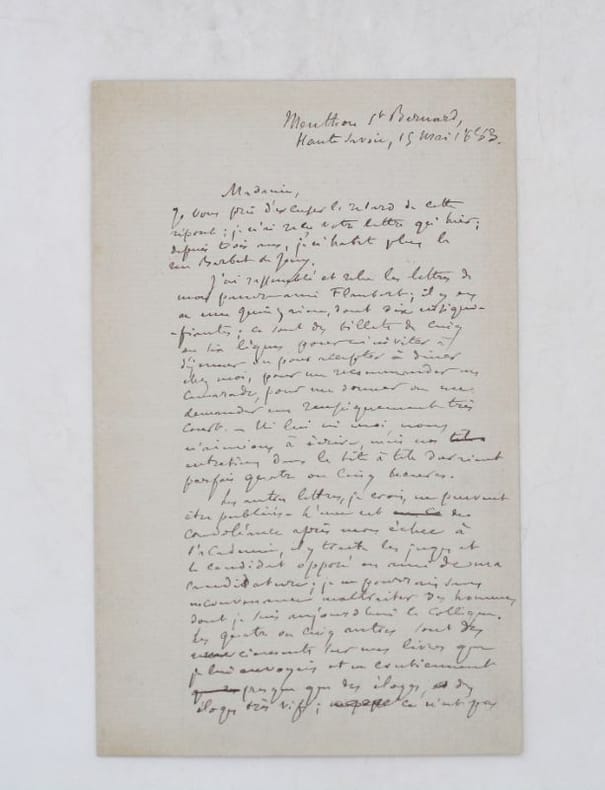 Menthon St Bernard,
Haute Savoie, 15 mai 1883.
Madame,
Je vous prie d'excuser le retard de cette
réponse ; je n'ai reçu votre lettre qu'hier ;
depuis trois ans, je n'habite plus la
rue Barbet de Jouy.
J'ai rassemblé et relu les lettres de
mon pauvre ami Flaubert ; il y en
a une quinzaine, dont dix insigni-
-fiantes ; ce sont des billets de cinq
ou six lignes pour m'inviter à
déjeuner ou pour accepter à dîner
chez moi, pour me recommander un
camarade, pour me donner ou me
demander un renseignement très
court. – Ni lui ni moi, nous
n'aimions à écrire, mais nos
entretiens dans le tête à tête duraient
parfois quatre ou cinq heures.
Les autres lettres, je crois, ne peuvent
être publiées. L'une est de
condoléance après mon échec à
l'Académie, il y traite les juges et
le candidat opposé en ami de ma
candidature ; je ne pourrais sans
inconvenance maltraiter des hommes
dont je suis aujourd'hui le collègue.
Les quatre ou cinq autres sont des
remerciements sur mes livres que
je lui envoyais et ne contiennent
presque que des éloges, et des
éloges très vifs ; ce n'est pas